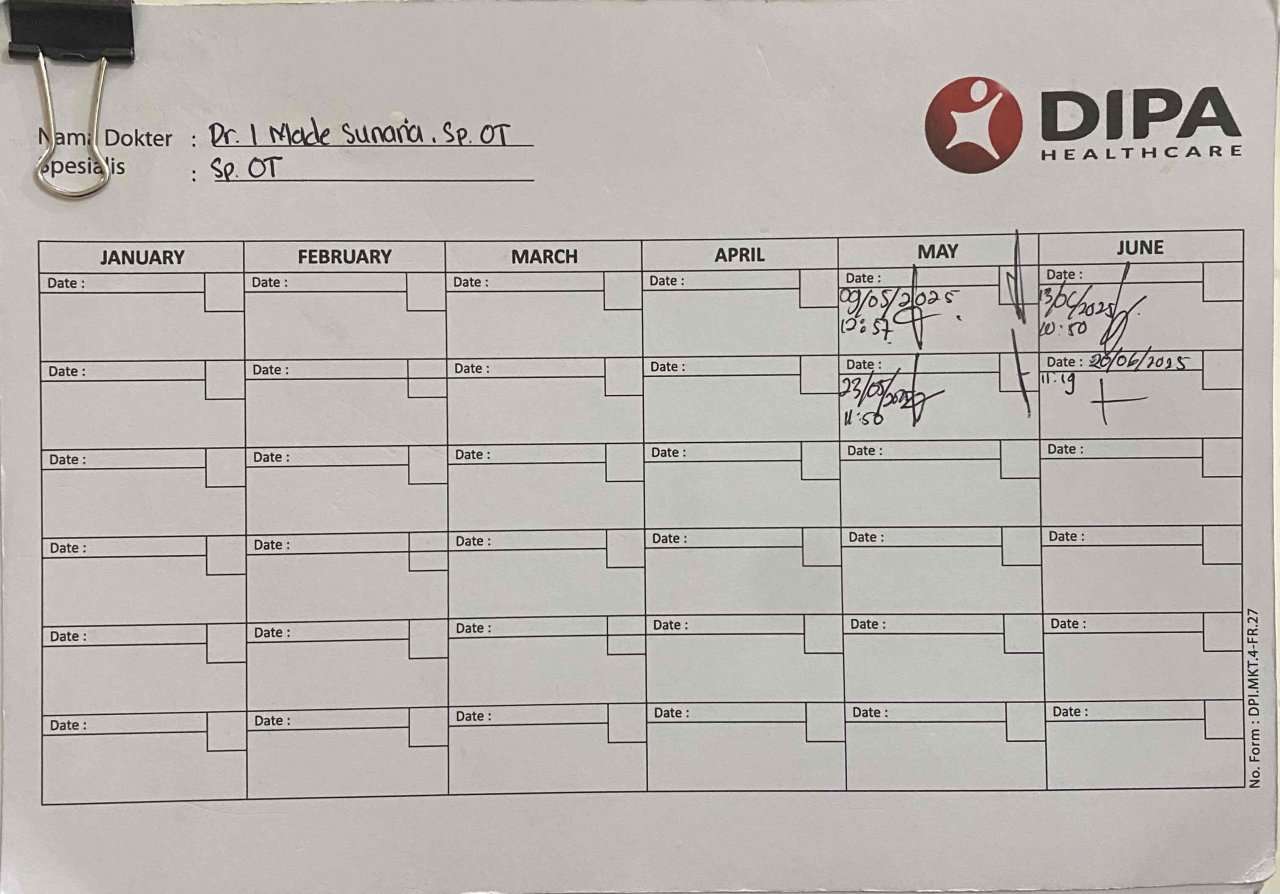 DIPA
HEALTHCARE
Nama Dokter : Dr. I Made Sunaria. Sp. OT
Spesialis : Sp. OT
JANUARY FEBRUARY MARCH APRIL MAY JUNE
Date : Date : Date : Date : Date : Date :
09/05/2025 13/06/2025
12:57 10:50
Date : Date : Date : Date : Date : Date : 20/06/2025
23/05/2025 11:19
11:50
Date : Date : Date : Date : Date : Date :
Date : Date : Date : Date : Date : Date :
Date : Date : Date : Date : Date : Date :
Date : Date : Date : Date : Date : Date :
No. Form : DPI.MKT.4-FR.27